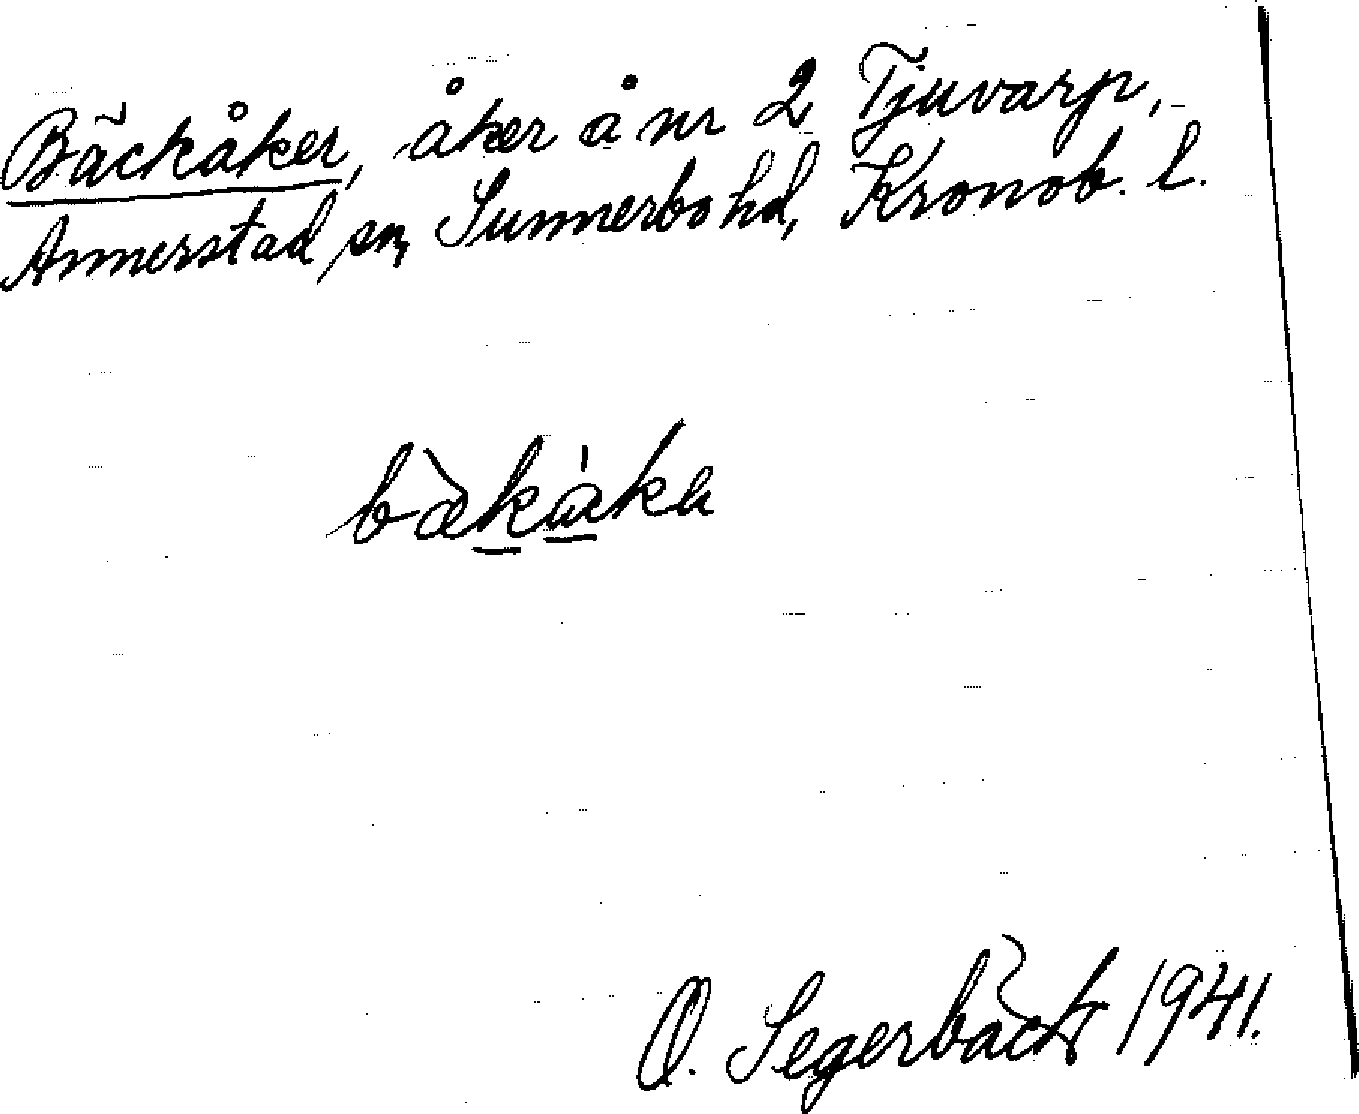 Bäckåker, åker å nr 2 Tjuvarp,
Annerstad sn, Sunnerbo hd, Kronob. l.
bæ̀kåka
O. Segerbäck 1941.